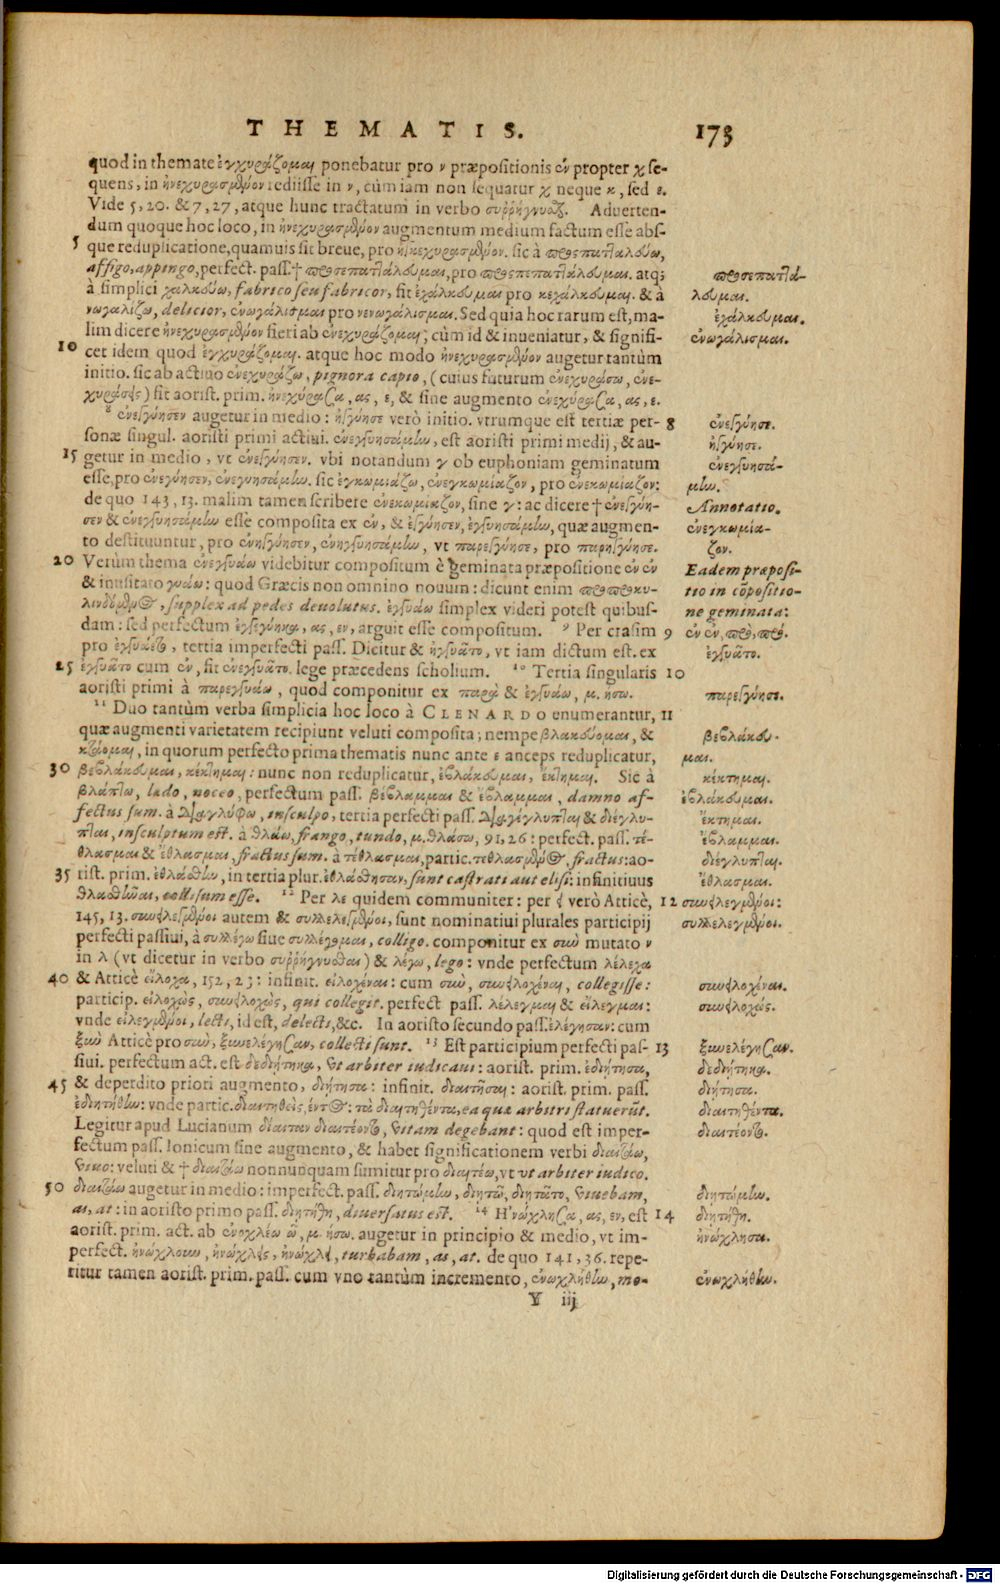 THEMATIS. 173
quod in themate ἐγχυράζομαι ponebatur pro ν præpositionis ἐν propter χ se-
quens, in ἠνεχυρασμένον rediisse in ν, cùm iam non sequatur χ neque κ, sed ε.
Vide 5, 20. & 7, 27, atque hunc tractatum in verbo Aduerten-
dum quoque hoc loco, in ἠνεχυρασμένον augmentum medium factum esse abs-
5 que reduplicatione, quamuis sit breue, pro ἠγκεχυρασμένον. sic à προσπατταλούω,
affigo, appingo, perfect. pass. † προσεπατταλουμαι, pro προσπεπατταλουμαι. atq; προσεπαττά-
à simplici χαλκούω, fabrico seu fabricor, fit ἐχάλκουμαι pro κεχάλκουμαι. & à λουμαι.
νωγαλίζω, delicior, ἐνωγάλισμαι pro νενωγάλισμαι. Sed quia hoc rarum est, ma- ἐχάλκουμαι.
lim dicere ἠνεχυρασμένον fieri ab ἐνεχυράζομαι; cùm id & inueniatur, & signifi- ἐνωγάλισμαι.
10 cet idem quod ἐγχυράζομαι. atque hoc modo ἠνεχυρασμένον augetur tantùm
initio. sic ab actiuo ἐνεχυράζω, pignora capio, (cuius futurum ἐνεχυράσω, ἐνε-
χυράσεις) fit aorist. prim. ἠνεχύρασα, ας, ε, & sine augmento ἐνεχύρασα, ας, ε.
8 ἐνεγύησεν augetur in medio: ἠγύησε verò initio. vtrumque est tertiæ per- 8 ἐνεγύησε.
sonæ singul. aoristi primi actiui. ἐνεγγυησάμην, est aoristi primi medij, & au- ἠγύησε.
15 getur in medio, vt ἐνεγγύησεν. vbi notandum γ ob euphoniam geminatum ἐνεγγυησά-
esse, pro ἐνεγύησεν, ἐνεγυησάμην. sic ἐγκωμιάζω, ἐνεγκωμίαζον, pro ἐνεκωμίαζον: μην.
de quo 143, 13. malim tamen scribere ἐνεκωμίαζον, sine γ: ac dicere † ἐνεγγύη- Annotatio.
σεν & ἐνεγγυησάμην esse composita ex ἐν, & ἐγγύησεν, ἐγγυησάμην, quæ augmen- ἐνεγκωμία-
to destituuntur, pro ἐνηγγύησεν, ἐνηγγυησάμην, vt παρεγγύησε, pro παρηγγύησε. ζον.
20 Verùm thema ἐνεγγυάω videbitur compositum è geminata præpositione ἐν ἐν Eadem præposi-
& inusitato γυάω: quod Græcis non omnino nouum: dicunt enim προπροκυ- tio in cōpositio-
λινδόμενος, supplex ad pedes deuolutus. ἐγγυάω simplex videri potest quibus- ne geminata:
dam: sed perfectum ἐγγεγύηκα, ας, εν, arguit esse compositum. 9 Per crasim 9 ἐν ἐν, πρὸ, πρό.
pro ἐγγυάετο, tertia imperfecti pass. Dicitur & ἠγγυᾶτο, vt iam dictum est. ex ἐγγυᾶτο.
25 ἐγγυᾶτο cum ἐν, fit ἐνεγγυᾶτο. lege præcedens scholium. 10 Tertia singularis 10
aoristi primi à παρεγγυάω, quod componitur ex παρὰ & ἐγγυάω, μ. ήσω. παρεγγύησε.
11 Duo tantùm verba simplicia hoc loco à CLENARDO enumerantur, 11
quæ augmenti varietatem recipiunt veluti composita; nempe βλακούομαι, & βεβλάκου-
κτάομαι, in quorum perfecto prima thematis nunc ante ε anceps reduplicatur, μαι.
30 βεβλάκουμαι, κέκτημαι: nunc non reduplicatur, ἐβλάκουμαι, ἔκτημαι. Sic à κέκτημαι.
βλάπτω, lædo, noceo, perfectum pass. βέβλαμμαι & ἔβλαμμαι, damno af- ἐβλάκουμαι.
fectus sum. à διαγλύφω, insculpo, tertia perfecti pass. διαγέγλυπται & διέγλυ- ἔκτημαι.
πται, insculptum est. à θλάω, frango, tundo, μ. θλάσω, 91, 26: perfect. pass. τέ- ἔβλαμμαι.
θλασμαι & ἔθλασμαι, fractus sum. à τέθλασμαι, partic. τεθλασμένος, fractus: ao- διέγλυπται.
35 rist. prim. ἐθλάσθην, in tertia plur. ἐθλάσθησαν, sunt castrati aut elisi: infinitiuus ἔθλασμαι.
θλασθῆναι, collisum esse. 12 Per λε quidem communiter: per ει verò Atticè, 12 συνειλεγμένοι:
145, 13. συνειλεγμένοι autem & συλλελεγμένοι, sunt nominatiui plurales participij συλλελεγμένοι.
perfecti passiui, à συλλέγω siue συλλέγομαι, colligo. componitur ex σὺν mutato ν
in λ (vt dicetur in verbo συῤῥήγνυσθαι) & λέγω, lego: vnde perfectum λέλεχα
40 & Atticè εἴλοχα, 152, 23: infinit. εἰλοχέναι: cum σὺν, συνειλοχέναι, collegisse: συνειλοχέναι.
particip. εἰλοχὼς, συνειλοχὼς, qui collegit. perfect pass. λέλεγμαι & εἴλεγμαι: συνειλοχώς.
vnde εἰλεγμένοι, lecti, id est, delecti, &c. In aoristo secundo pass. ἐλέγησαν: cum
ξὺν Atticè pro σὺν, ξυνελέγησαν, collecti sunt. 13 Est participium perfecti pas- 13 ξυνελέγησαν.
siui. perfectum act. est δεδιήτηκα, vt arbiter iudicaui: aorist. prim. ἐδιήτησα, δεδιήτηκα.
45 & deperdito priori augmento, διήτησα: infinit. διαιτῆσαι: aorist. prim. pass. διήτησα.
ἐδιητήθην: vnde partic. διαιτηθεὶς, έντος: τὰ διαιτηθέντα, ea quæ arbitri statuerūt. διαιτηθέντα.
Legitur apud Lucianum δίαιταν διαιτέοντο, vitam degebant: quod est imper- διαιτέοντο.
fectum pass. Ionicum sine augmento, & habet significationem verbi διαιτάω,
viuo: veluti & † διαιτάω nonnunquam sumitur pro διαιτέω, vt vt arbiter iudico.
50 διαιτάω augetur in medio: imperfect. pass. διητώμην, διητῶ, διητᾶτο, viuebam, διητώμην.
as, at: in aoristo primo pass. διητήθη, diuersatus est. 14 Ἠνώχλησα, ας, εν, est 14 διητήθη.
aorist. prim. act. ab ἐνοχλέω ῶ, μ. ήσω. augetur in principio & medio, vt im- ἠνώχλησα.
perfect. ἠνώχλουν, ἠνώχλεις, ἠνώχλει, turbabam, as, at. de quo 141, 36. repe-
ritur tamen aorist. prim. pass. cum vno tantùm incremento, ἐνωχλήθην, mo- ἐνωχλήθην.
Y iij
Digitalisierung gefördert durch die Deutsche Forschungsgemeinschaft - DFG